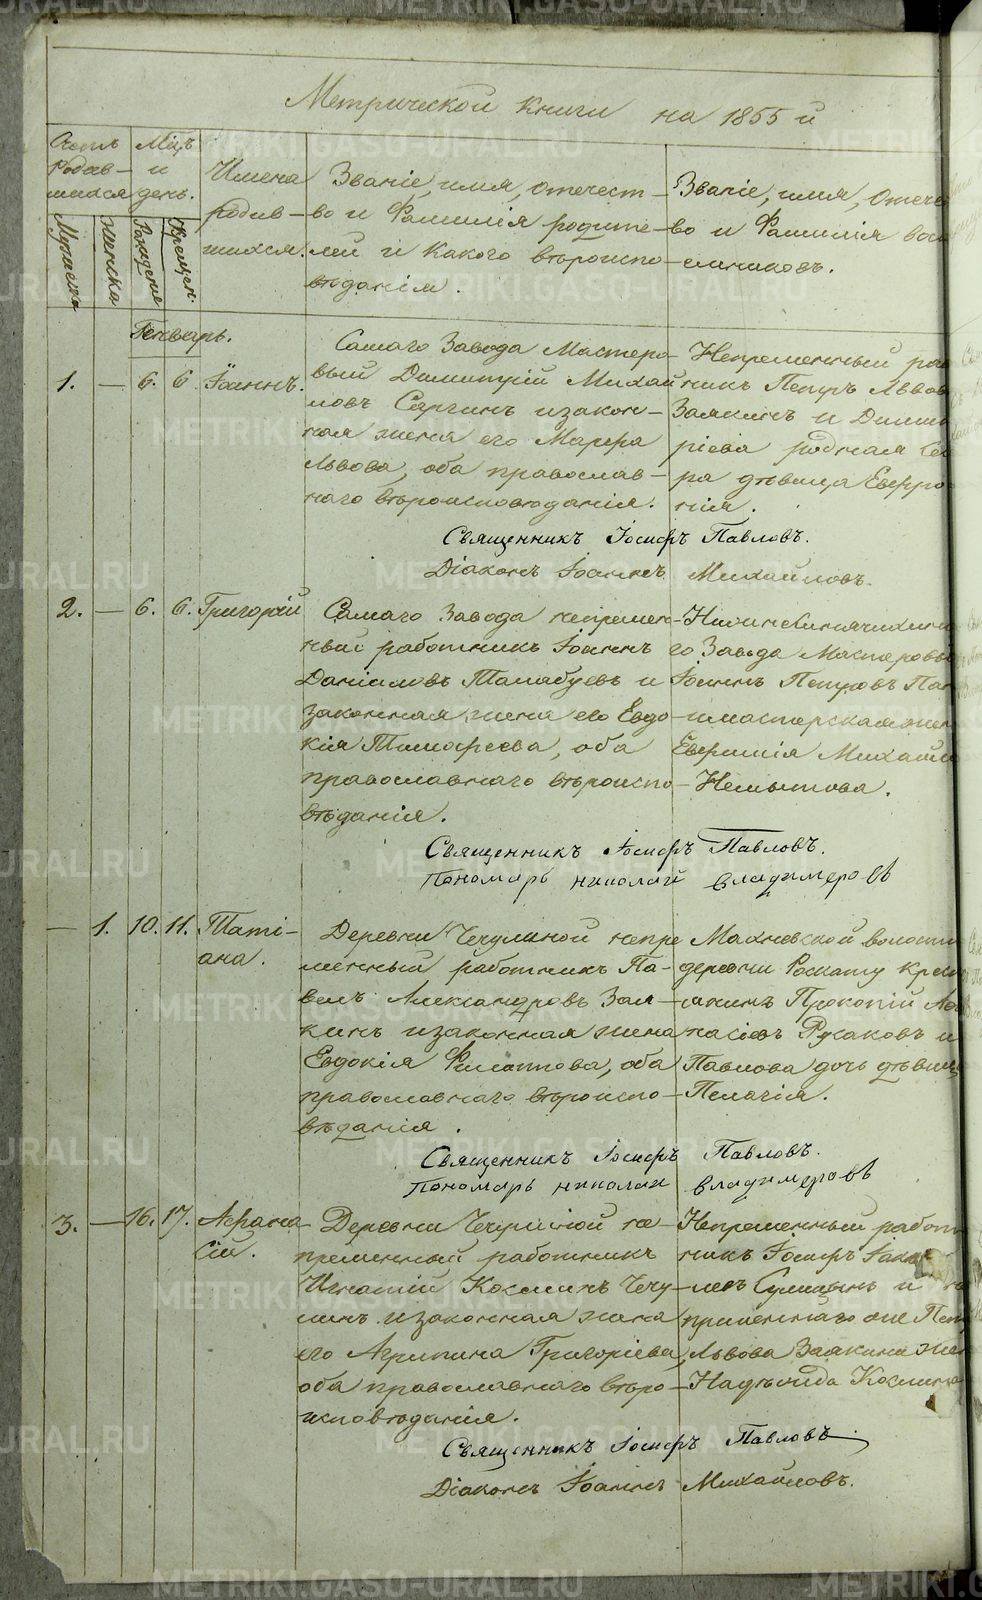 Метрической книги на 1855 й
Счетъ родив-шихся
Мужеска
женска
Мѣц. и день.
Рождения
Крещен.
Имена родив-шихся.
Званіе, имя, отечест-
во и Фамилія родите-
лей и какого вѣроиспо-
вѣданія.
Званіе, имя, отечес
во и Фамилія вос
емниковъ.
Генварь.
1. — 6. 6 Іоаннъ.
Самаго Завода Мастеро-
вый Димитрій Михай
ловъ Сергинъ и закон-
ная жена его Марѳа
Львова, оба православ-
наго вѣроисповѣданія.
Непременный раб
никъ Петръ Львов
Заякинъ и Димит
ріева родная сес
ра дѣвица Евфро
нія.
Священникъ Іосифъ Павловъ.
Діаконъ Іоаннъ Михайловъ.
2. — 6. 6. Григорій
Самаго Завода непремен-
ный работникъ Іоаннъ
Даніиловъ Талабуевъ и
законная жена его Евдо-
кія Тимофеева, оба
православнаго вѣроиспо-
вѣданія.
го Завода Мастеровы
Іоаннъ Петровъ Пан
и мастерская жен
Евфимія Михайло
Немытова.
Священникъ Іосифъ Павловъ.
Пономарь николай владимеровъ
— 1. 10. 11. Таті-
ана.
Деревни Чечулиной непре
менный работникъ Па-
велъ Александровъ Зая-
кинъ и законная жена
Евдокія Филатова, оба
православнаго вѣроиспо-
вѣданія.
Махневской волости
деревни Роскату крес
янинъ Прокопій Аѳ
насіевъ Русаковъ и
Павлова дочь дѣвиц
Пелагія.
Священникъ Іосифъ Павловъ.
Пономарь николаи владимеровъ
3. — 16. 17. Аѳана-
сій.
Деревни Чечулиной не-
пременный работникъ
Игнатій Козминъ Чечу-
линъ и законная жена
его Агрипина Григоріева,
оба православнаго вѣро-
исповѣданія.
Непременный работ
никъ Іосифъ Іаков
левъ Сулицынъ и не
применнаго же Пет
Львова Заякина жен
Надѣжда Козмина
Священникъ Іосифъ Павловъ.
Діаконъ Іоаннъ Михайловъ.
METRIKI.GASO-URAL.RU